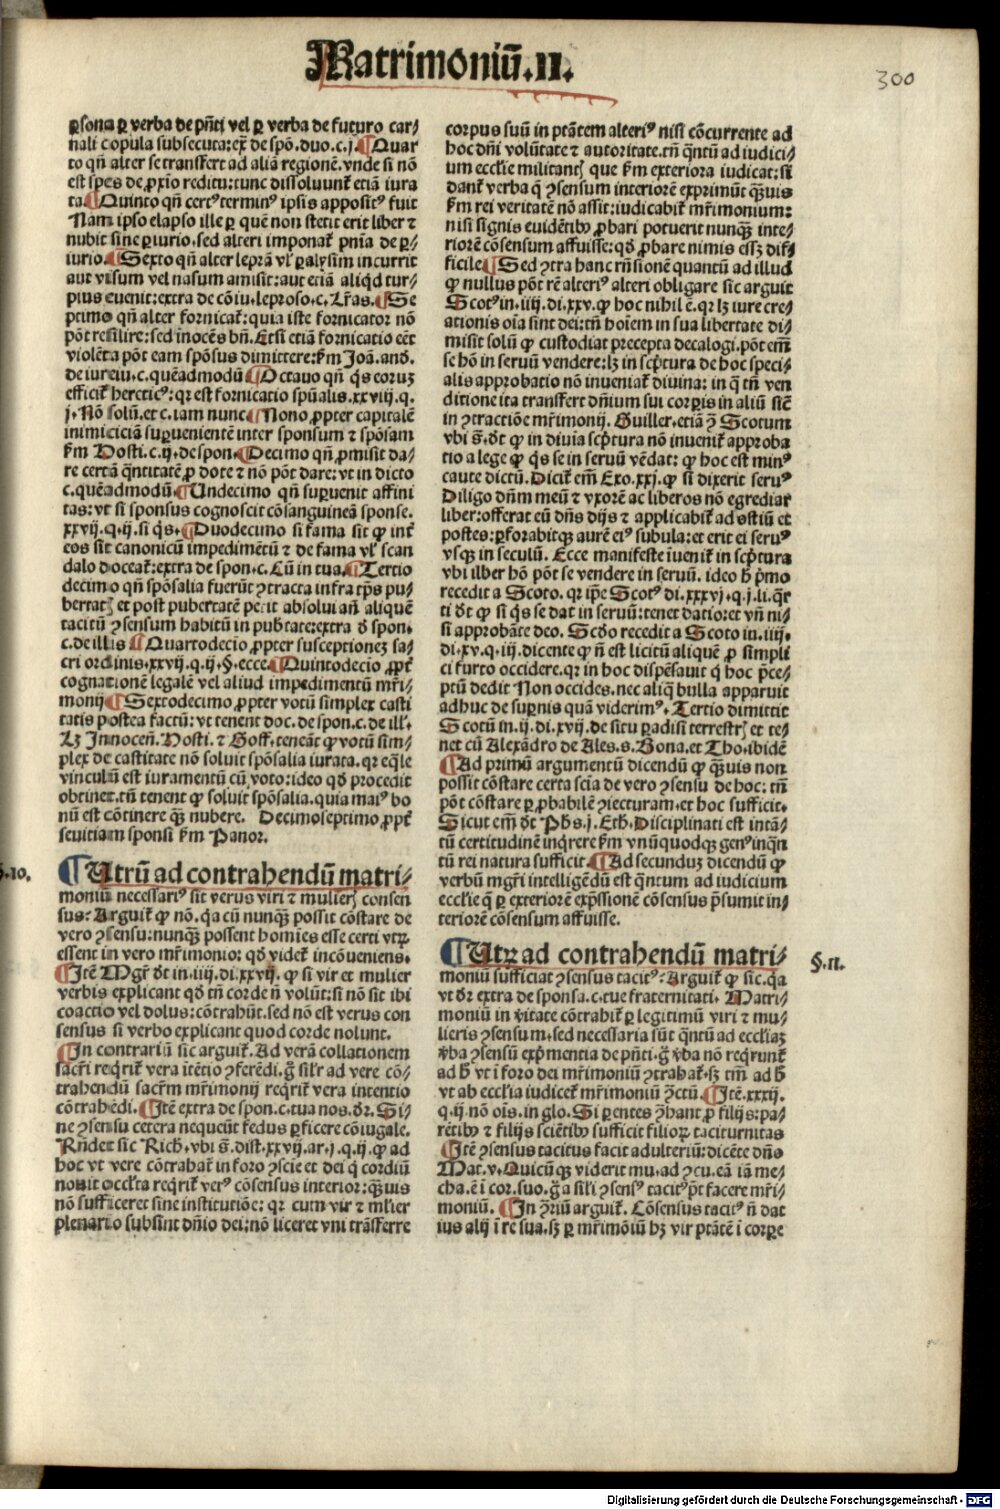 Matrimoniū.II.
300
ꝑsona ꝑ verba de pñti vel ꝑ verba de futuro car/
nali copula subsecuta: ex̄ de spō. duo. c. j. ¶ Quar
to qñ alter se transfert ad aliā regionē. vnde si nō
est spes de ꝓxīo reditu: tunc dissoluunt̄ etiā iura
ta. ¶ Quinto qñ certꝰ terminꝰ ipsis appositꝰ fuit
Nam ipso elapso ille ꝑ quē non stetit erit liber ⁊
nubit sine ꝑiurio. sed alteri imponat̄ pn̄ia de ꝑ/
iurio. ¶ Sexto qñ alter leprā vl̓ ꝑalysim incurrit
aut visum vel nasum amisit: aut etiā aliqd̓ tur/
pius euenit: extra de cōiu. leproso. c. Lr̄as. ¶ Se
ptimo qñ alter fornicat̄: quia iste fornicator nō
pōt resilire: sed īnocēs bn̄. Etsi etiā fornicatio eēt
violēta pōt eam spōsus dimittere: ẜm Joā. and.
de iureiu. c. quēadmodū ¶ Octauo qñ q̓s eoruꝫ
efficit̄ hereticꝰ: qr est fornicatio spūalis. xxviij. q.
j. Nō solū. et c. iam nunc ¶ Nono ꝓpter capitalē
inimiciciā suꝑuenientē inter sponsum ⁊ spōsam
ẜm Hosti. c. ij. de spon. ¶ Decimo qñ ꝓmisit da/
re certā q̄ntitatē ꝑ dote ⁊ nō pōt dare: vt in dicto
c. quēadmodū. ¶ Undecimo qñ suꝑuenit affini
tas: vt si sponsus cognoscit cōsanguineā sponse.
xxvij. q. ij. si q̓s. ¶ Duodecimo si fama sit ꝙ int̄
eos sit canonicū impedimētū ⁊ de fama vl̓ scan
dalo doceat̄: extra de spon. c. Cū in tua. ¶ Tertio
decimo qñ spōsalia fuerūt ꝯtracta infra tp̄s pu/
bertat̄ et post pubertatē petit absolui añ aliquē
tacitū ꝯsensum habitū in pub̄tate: extra d̓ spon.
c. de illis ¶ Quartodecīo ꝓpter susceptionez sa/
cri ordinis. xxvij. q. ij. §. ecce. ¶ Quintodecio ꝓpt̄
cognationē legalē vel aliud impedimentū mr̄i/
monij ¶ Sextodecimo ꝓpter votū simplex casti
tatis postea factū: vt tenent doc. de spon. c. de ill̓.
Lꝫ Innocen̄. Hosti. ⁊ Goff. teneāt ꝙ votū sim/
plex de castitate nō soluit spōsalia iurata. qr eq̄le
vinculū est iuramentū cū voto: ideo qd̓ procedit
obtinet. tn̄ tenent ꝙ soluit spōsalia. quia maiꝰ bo
nū est cōtinere q̄ꝫ nubere. Decimoseptimo ꝓpt̄
seuitiam sponsi ẜm Panor.
§.10.
¶ Utrū ad contrahendū matri/
moniū necessariꝰ sit verus viri ⁊ mulier̄ consen
sus: Arguit̄ ꝙ nō. q̓a cū nunq̄ꝫ possit cōstare de
vero ꝯsensu: nunq̄ꝫ possent homīes esse certi vtꝝ
essent in vero mr̄imonio: qd̓ videt̄ incōueniens.
¶ Itē Mgr̄ dt̄ in. iiij. di. xxvij. ꝙ si vir et mulier
verbis explicant qd̓ tn̄ corde n̄ volūt: si nō sit ibi
coactio vel dolus: cōtrahūt. sed nō est verus con
sensus si verbo explicant quod corde nolunt.
¶ In contrariū sic arguit̄. Ad verā collationem
sacr̄i req̓rit̄ vera ītētio ꝯferēdi. g̊ sil̓r ad vere cō/
trahendū sacr̄m mr̄imonij req̓rit̄ vera intentio
cōtrahēdi. ¶ Itē extra de spon. c. tua nos. dr̄. Si/
ne ꝯsensu cetera nequeūt fedus ꝑficere cōiugale.
Rn̄det sic Rich. vbi s̄. dist. xxvij. ar. j. q. ij. ꝙ ad
hoc vt vere cōtrahat̄ in foro ꝯscie et dei q̓ cordiū
nouit occlta req̓rit̄ verꝰ cōsensus interior: q̄ꝫuis
nō sufficeret sine institutiōe: qr cum vir ⁊ ml̓ier
plenario subsint dn̄io dei: nō liceret vni trāsferre
corpus suū in ptātem alteriꝰ nisi cōcurrente ad
hoc dn̄i volūtate ⁊ autoritate. tn̄ q̄ntū ad iudici/
um eccl̓ie militant̄ que ẜm exteriora iudicat: si
dant̄ verba q̓ ꝯsensum interiorē exprimūt q̄ꝫuis
ẜm rei veritatē nō assit: iudicabit̄ mr̄imonium:
nisi signis euidētibꝰ ꝓbari potuerit nunq̄ꝫ inte/
riorē cōsensum affuisse: qd̓ ꝓbare nimis essꝫ dif/
ficile ¶ Sed ꝯtra hanc rn̄sionē quantū ad illud
ꝙ nullus pōt rē alteriꝰ alteri obligare sic arguit
Scotꝰ in. iiij. di. xxv. ꝙ hoc nihil ē. qr lꝫ iure cre/
ationis oīa sint dei: tn̄ hoīem in sua libertate di/
misit solū ꝙ custodiat precepta decalogi. pōt em̄
se hō in seruū vendere: lꝫ in scp̓tura de hoc speci/
alis approbatio nō inueniat̄ diuina: in q̓ tn̄ ven
ditione ita transfert dn̄ium sui corꝑis in aliū sic̄
in ꝯtractiōe mr̄imonij. Guiller. etiā ꝯ̄ Scotum
vbi s̄. dt̄ ꝙ in diuīa scp̓tura nō inuenit̄ approba
tio a lege ꝙ q̓s se in seruū vēdat: ꝙ hoc est minꝰ
caute dictū. Dicit̄ em̄ Exo. xxj. ꝙ si dixerit seruꝰ
Diligo dn̄m meū ⁊ vxorē ac liberos nō egrediar
liber: offerat eū dn̄s dijs ⁊ applicabit̄ ad ostiū et
postes: ꝑforabitqꝫ aurē eiꝰ subula: et erit ei seruꝰ
vsqꝫ in seculū. Ecce manifeste īuenit̄ in scp̓tura
vbi liber hō pōt se vendere in seruū. ideo h̓ p̓mo
recedit a Scoto. qr ip̄e Scotꝰ di. xxxvj. q. j. li. q̄r
ti dt̄ ꝙ si q̓s se dat in seruū: tenet datio: et vn̄ ni/
si approbāte deo. Scd̓o recedit a Scoto in. iiij.
di. xv. q. iij. dicente ꝙ n̄ est licitū aliquē ꝓ simpli
ci furto occidere. qr in hoc dispēsauit q̓ hoc p̄ce/
ptū dedit Non occides. nec aliq̓ bulla apparuit
adhuc de suꝑnis quā viderimꝰ. Tertio dimittit
Scotū in. ij. di. xvij. de situ ꝑadisi terrestr̄ et te/
net cū Alexādro de Ales. s. Bona. et Tho. ibidē
¶ Ad primū argumentū dicendū ꝙ q̄ꝫuis non
possit cōstare certa scīa de vero ꝯsensu de hoc: tn̄
pōt cōstare ꝑ ꝓbabilē ꝯiecturam. et hoc sufficit.
Sicut em̄ dt̄ Ph̄s. j. Eth. Disciplinati est intā/
tū certitudinē inq̓rere ẜm vnūquodqꝫ genꝰ inqn̄
tū rei natura sufficit. ¶ Ad secunduꝫ dicendū ꝙ
verbū mgr̄i intelligēdū est q̄ntum ad iudicium
eccl̓ie q̓ ꝑ exteriorē exp̄ssionē cōsensus p̄sumit in/
teriorē cōsensum affuisse.
¶ Utꝝ ad contrahendū matri/
§.11.
moniū sufficiat ꝯsensus tacitꝰ: Arguit̄ ꝙ sic. q̓a
vt dr̄ extra de sponsa. c. tue fraternitati. Matri/
moniū in v̓itate cōtrahit̄ ꝑ legitimū viri ⁊ mu/
lieris ꝯsensum. sed necessaria sūt q̄ntū ad eccl̓iaꝫ
v̓ba ꝯsensū exp̓mentia de pn̄ti. g̊ v̓ba nō req̓runt̄
ad h̓ vt ī foro dei mr̄imoniū ꝯtrahat̄. sꝫ tm̄ ad h̓
vt ab eccl̓ia iudicet̄ mr̄imoniū ꝯctū. ¶ Itē. xxxij.
q. ij nō oīs. in glo. Si ꝑentes ꝯhant ꝓ filijs: pa/
rētibꝰ ⁊ filijs sciētibꝰ sufficit filioꝝ taciturnitas
¶ Itē ꝯsensus tacitus facit adulteriū: dicēte dn̄o
Mat. v. Quicūqꝫ viderit mu. ad ꝯcu. eā iā me/
cha. ē ī cor. suo. g̊ a sil̓i ꝯsensꝰ tacitꝰ p̄t facere mr̄i/
moniū. ¶ In ꝯ̄riū arguit̄. Cōsensus tacitꝰ n̄ dat
ius alij ī re sua. sꝫ ꝑ mr̄imōiū hꝫ vir ptātē ī corꝑe
Digitalisierung gefördert durch die Deutsche Forschungsgemeinschaft - DFG